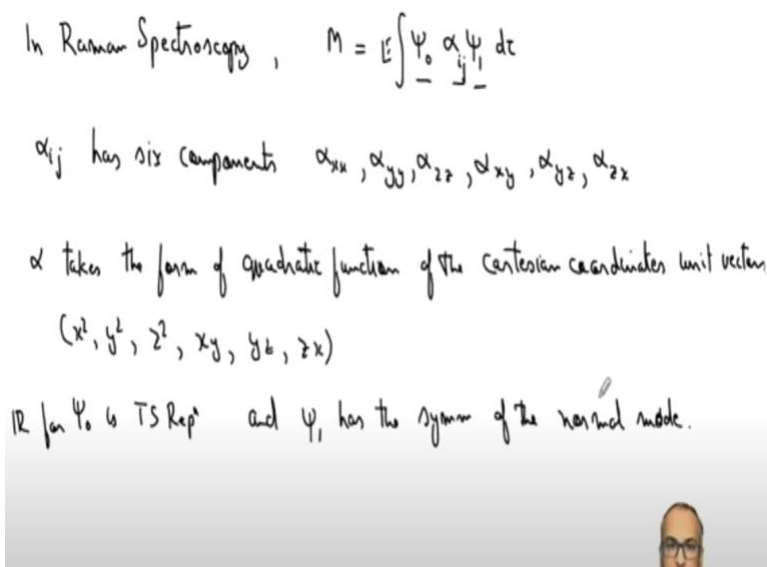 In Raman Spectroscopy, M = E∫Ψ₀ α_ij Ψ₁ dτ
α_ij has six components α_xx, α_yy, α_zz, α_xy, α_yz, α_zx
α takes the form of quadratic function of the cartesian coordinates unit vectors
(x², y², z², xy, yz, zx)
IR for Ψ₀ is TS Repⁿ and Ψ₁ has the symm of the normal mode.